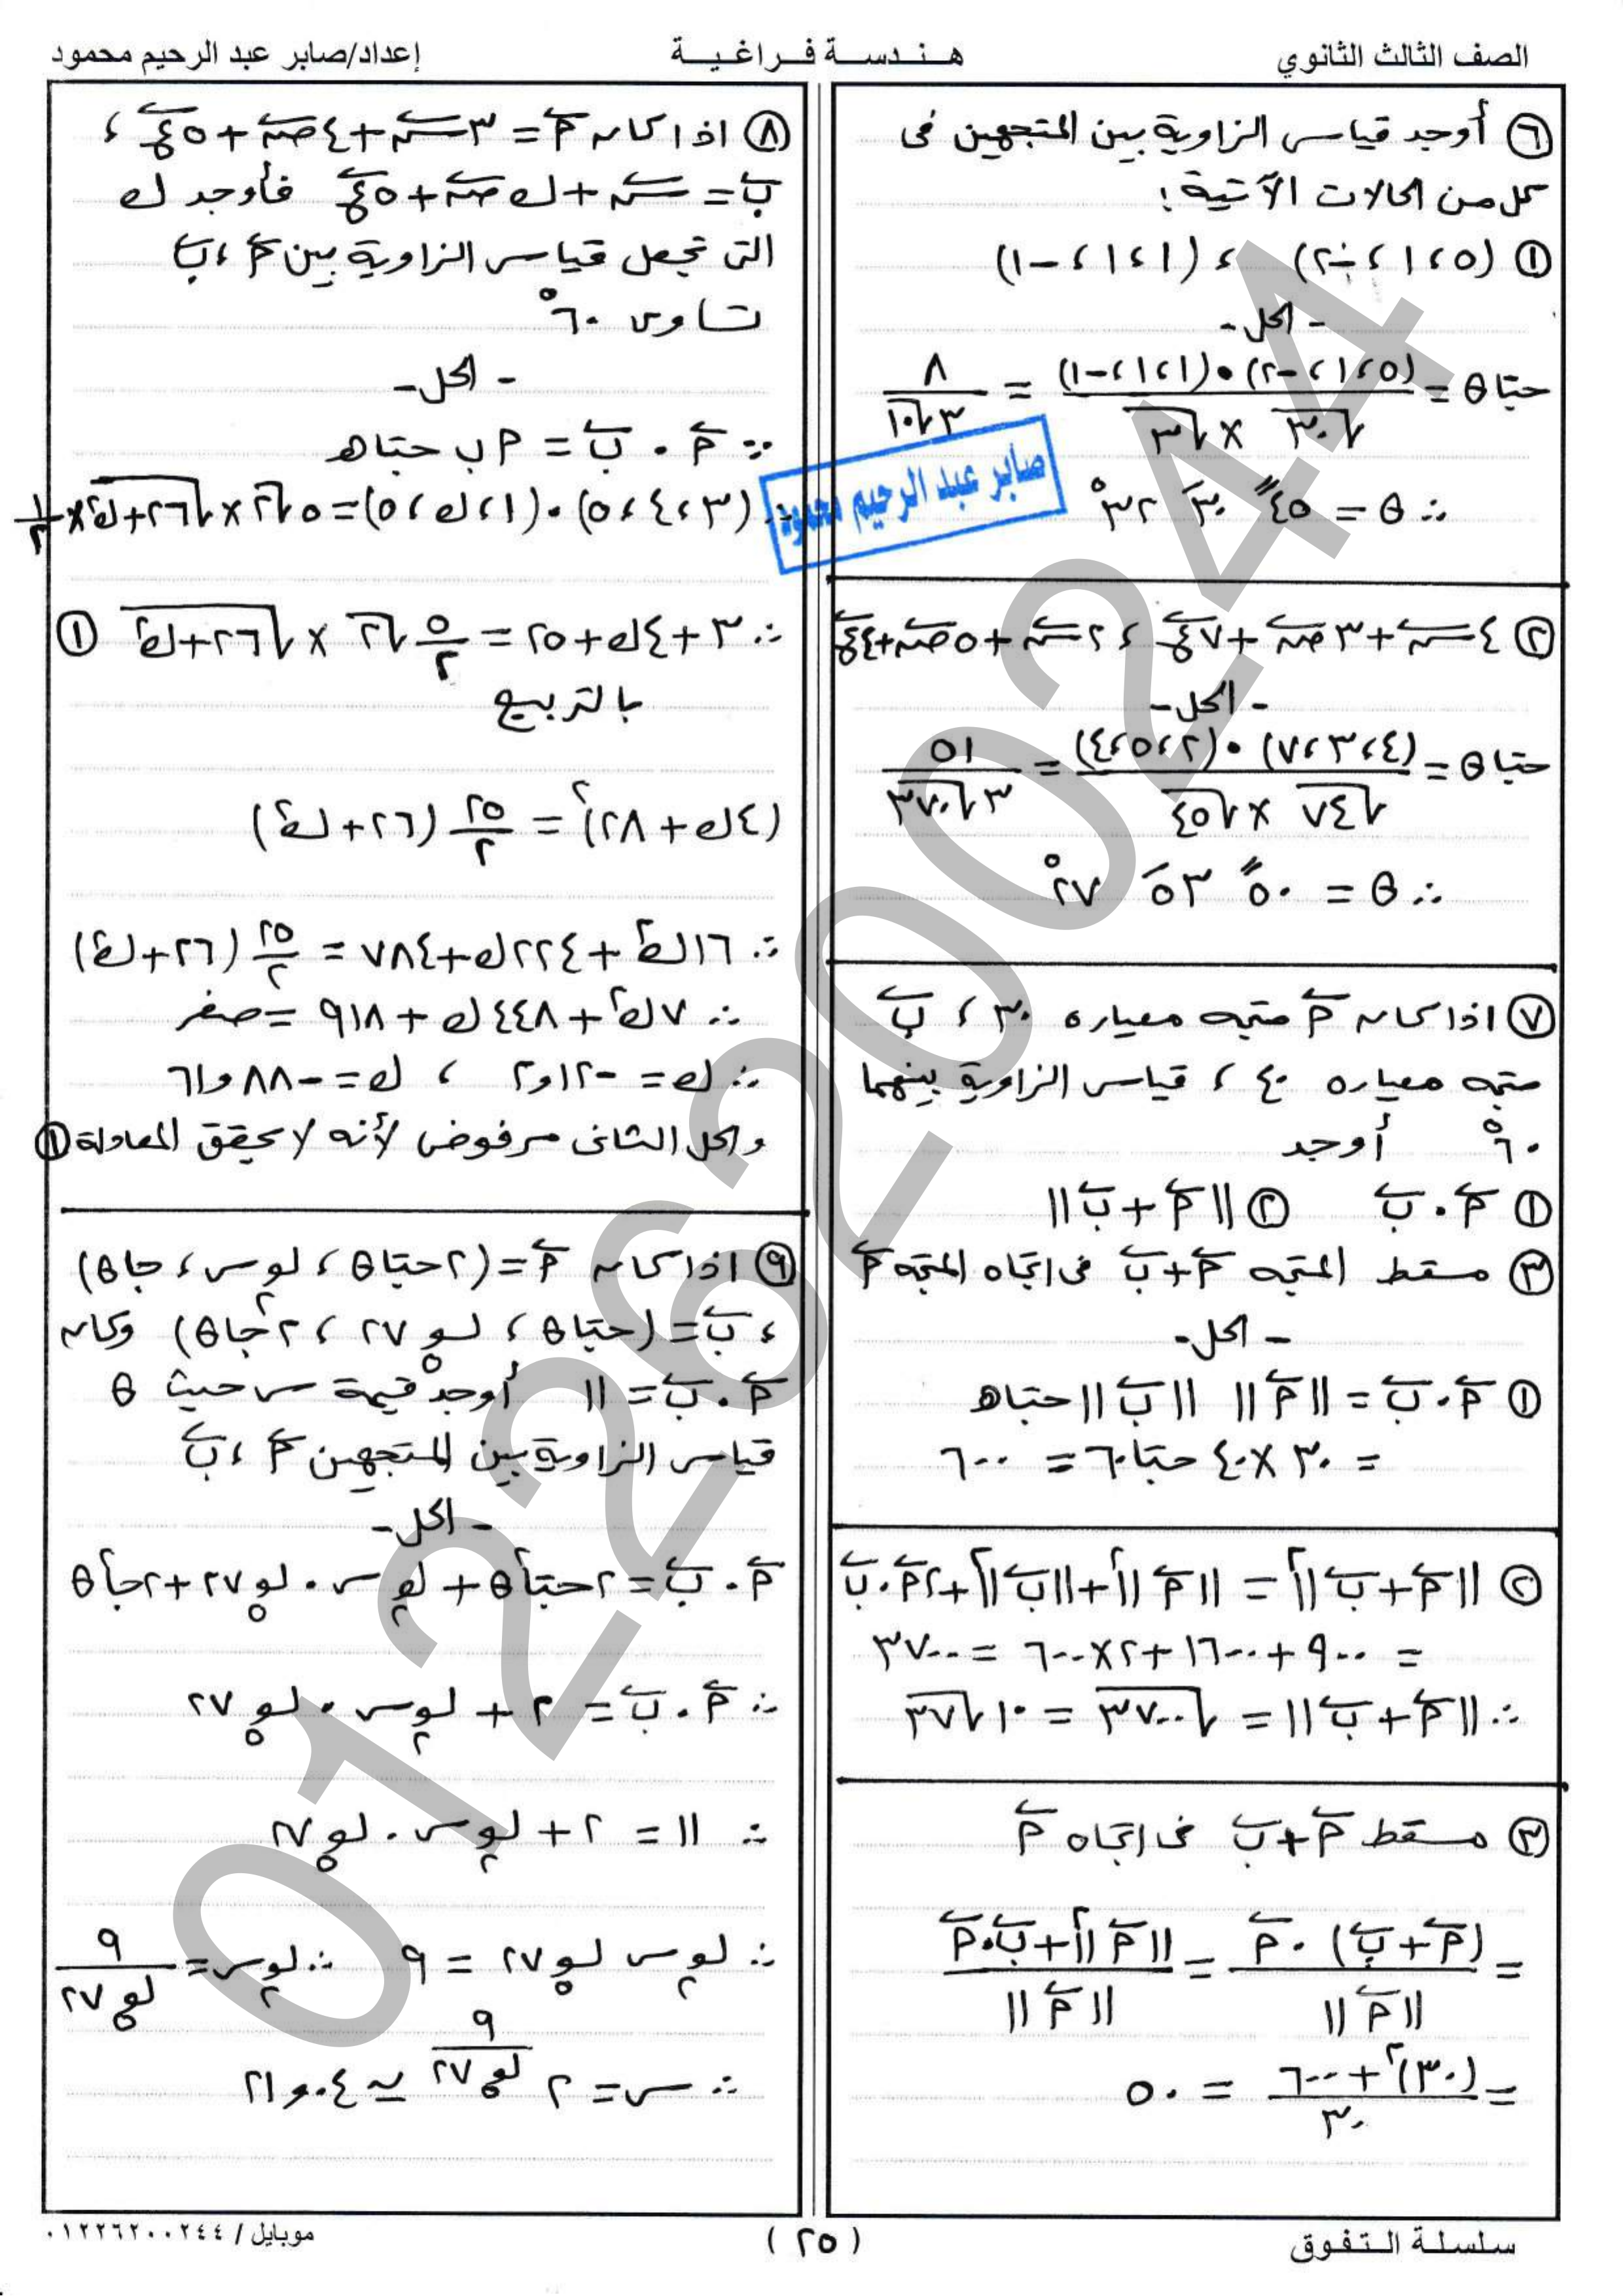 الصف الثالث الثانوي
هـنـدسـة فـراغـيـة
إعداد/صابر عبد الرحيم محمود
٦ أوجد قياس الزاوية بين المتجهين فى
كل من الحالات الآتية :
١ (٥ ، ١ ، -٢) ، (١ ، ١ ، -١)
- الحل -
حتا θ = (٥ ، ١ ، -٢) • (١ ، ١ ، -١) / √٣٠ × √٣ = ٨ / ٣√١٠
∴ θ = ٤٥ً ٣٠َ ٣٢°
٢ ٤ س + ٣ ص + ٧ ع ، ٢ س + ٥ ص + ٤ ع
- الحل -
حتا θ = (٤ ، ٣ ، ٧) • (٢ ، ٥ ، ٤) / √٧٤ × √٤٥ = ٥١ / ٣√٣٧٠
∴ θ = ٥٠ً ٥٣َ ٢٧°
٧ اذا كان م متجه معياره ٣٠ ، ب
متجه معياره ٤٠ ، قياس الزاوية بينهما
٦٠° أوجد
١ م . ب ٢ ||م + ب||
٣ مسقط المتجه م + ب فى اتجاه المتجه م
- الحل -
١ م . ب = ||م|| ||ب|| حتاه
= ٣٠ × ٤٠ حتا٦٠ = ٦٠٠
٢ ||م + ب||² = ||م||² + ||ب||² + ٢م . ب
= ٩٠٠ + ١٦٠٠ + ٢ × ٦٠٠ = ٣٧٠٠
∴ ||م + ب|| = √٣٧٠٠ = ١٠√٣٧
٣ مسقط م + ب فى اتجاه م
= (م + ب) . م / ||م|| = ||م||² + ب . م / ||م||
= (٣٠)² + ٦٠٠ / ٣٠ = ٥٠
٨ اذا كان م = ٣ س + ٤ ص + ٥ ع ،
ب = س + ك ص + ٥ ع فأوجد ك
التى تجعل قياس الزاوية بين م ، ب
تساوى ٦٠°
- الحل -
∵ م . ب = م ب حتاه
∴ (٣ ، ٤ ، ٥) • (١ ، ك ، ٥) = ٥√٢ × √٢٦ + ك² × ١/٢
∴ ٣ + ٤ك + ٢٥ = ٥/٢ √٢ × √٢٦ + ك² ١
بالتربيع
(٤ك + ٢٨)² = ٢٥/٢ (٢٦ + ك²)
∴ ١٦ك² + ٢٢٤ك + ٧٨٤ = ٢٥/٢ (٢٦ + ك²)
∴ ٧ك² + ٤٤٨ك + ٩١٨ = صفر
∴ ك = -٢و١٢ ، ك = -٨٨و٦١
والحل الثانى مرفوض لأنه لا يحقق المعادلة ١
٩ اذا كان م = (٢حتاθ ، لو₂س ، جاθ)
، ب = (حتاθ ، لو₅٢٧ ، ٢جاθ) وكان
م . ب = ١١ أوجد قيمة س حيث θ
قياس الزاوية بين المتجهين م ، ب
- الحل -
م . ب = ٢حتا²θ + لو₂س . لو₅٢٧ + ٢جا²θ
∴ م . ب = ٢ + لو₂س . لو₅٢٧
∴ ١١ = ٢ + لو₂س . لو₅٢٧
∴ لو₂س لو₅٢٧ = ٩ ∴ لو₂س = ٩ / لو₅٢٧
∴ س = ٢^(٩ / لو₅٢٧) ≃ ٠٤و٢١
صابر عبد الرحيم محمود
01226200244
سلسلة الـتـفـوق
( ٢٥ )
موبايل / ٠١٢٢٦٢٠٠٢٤٤